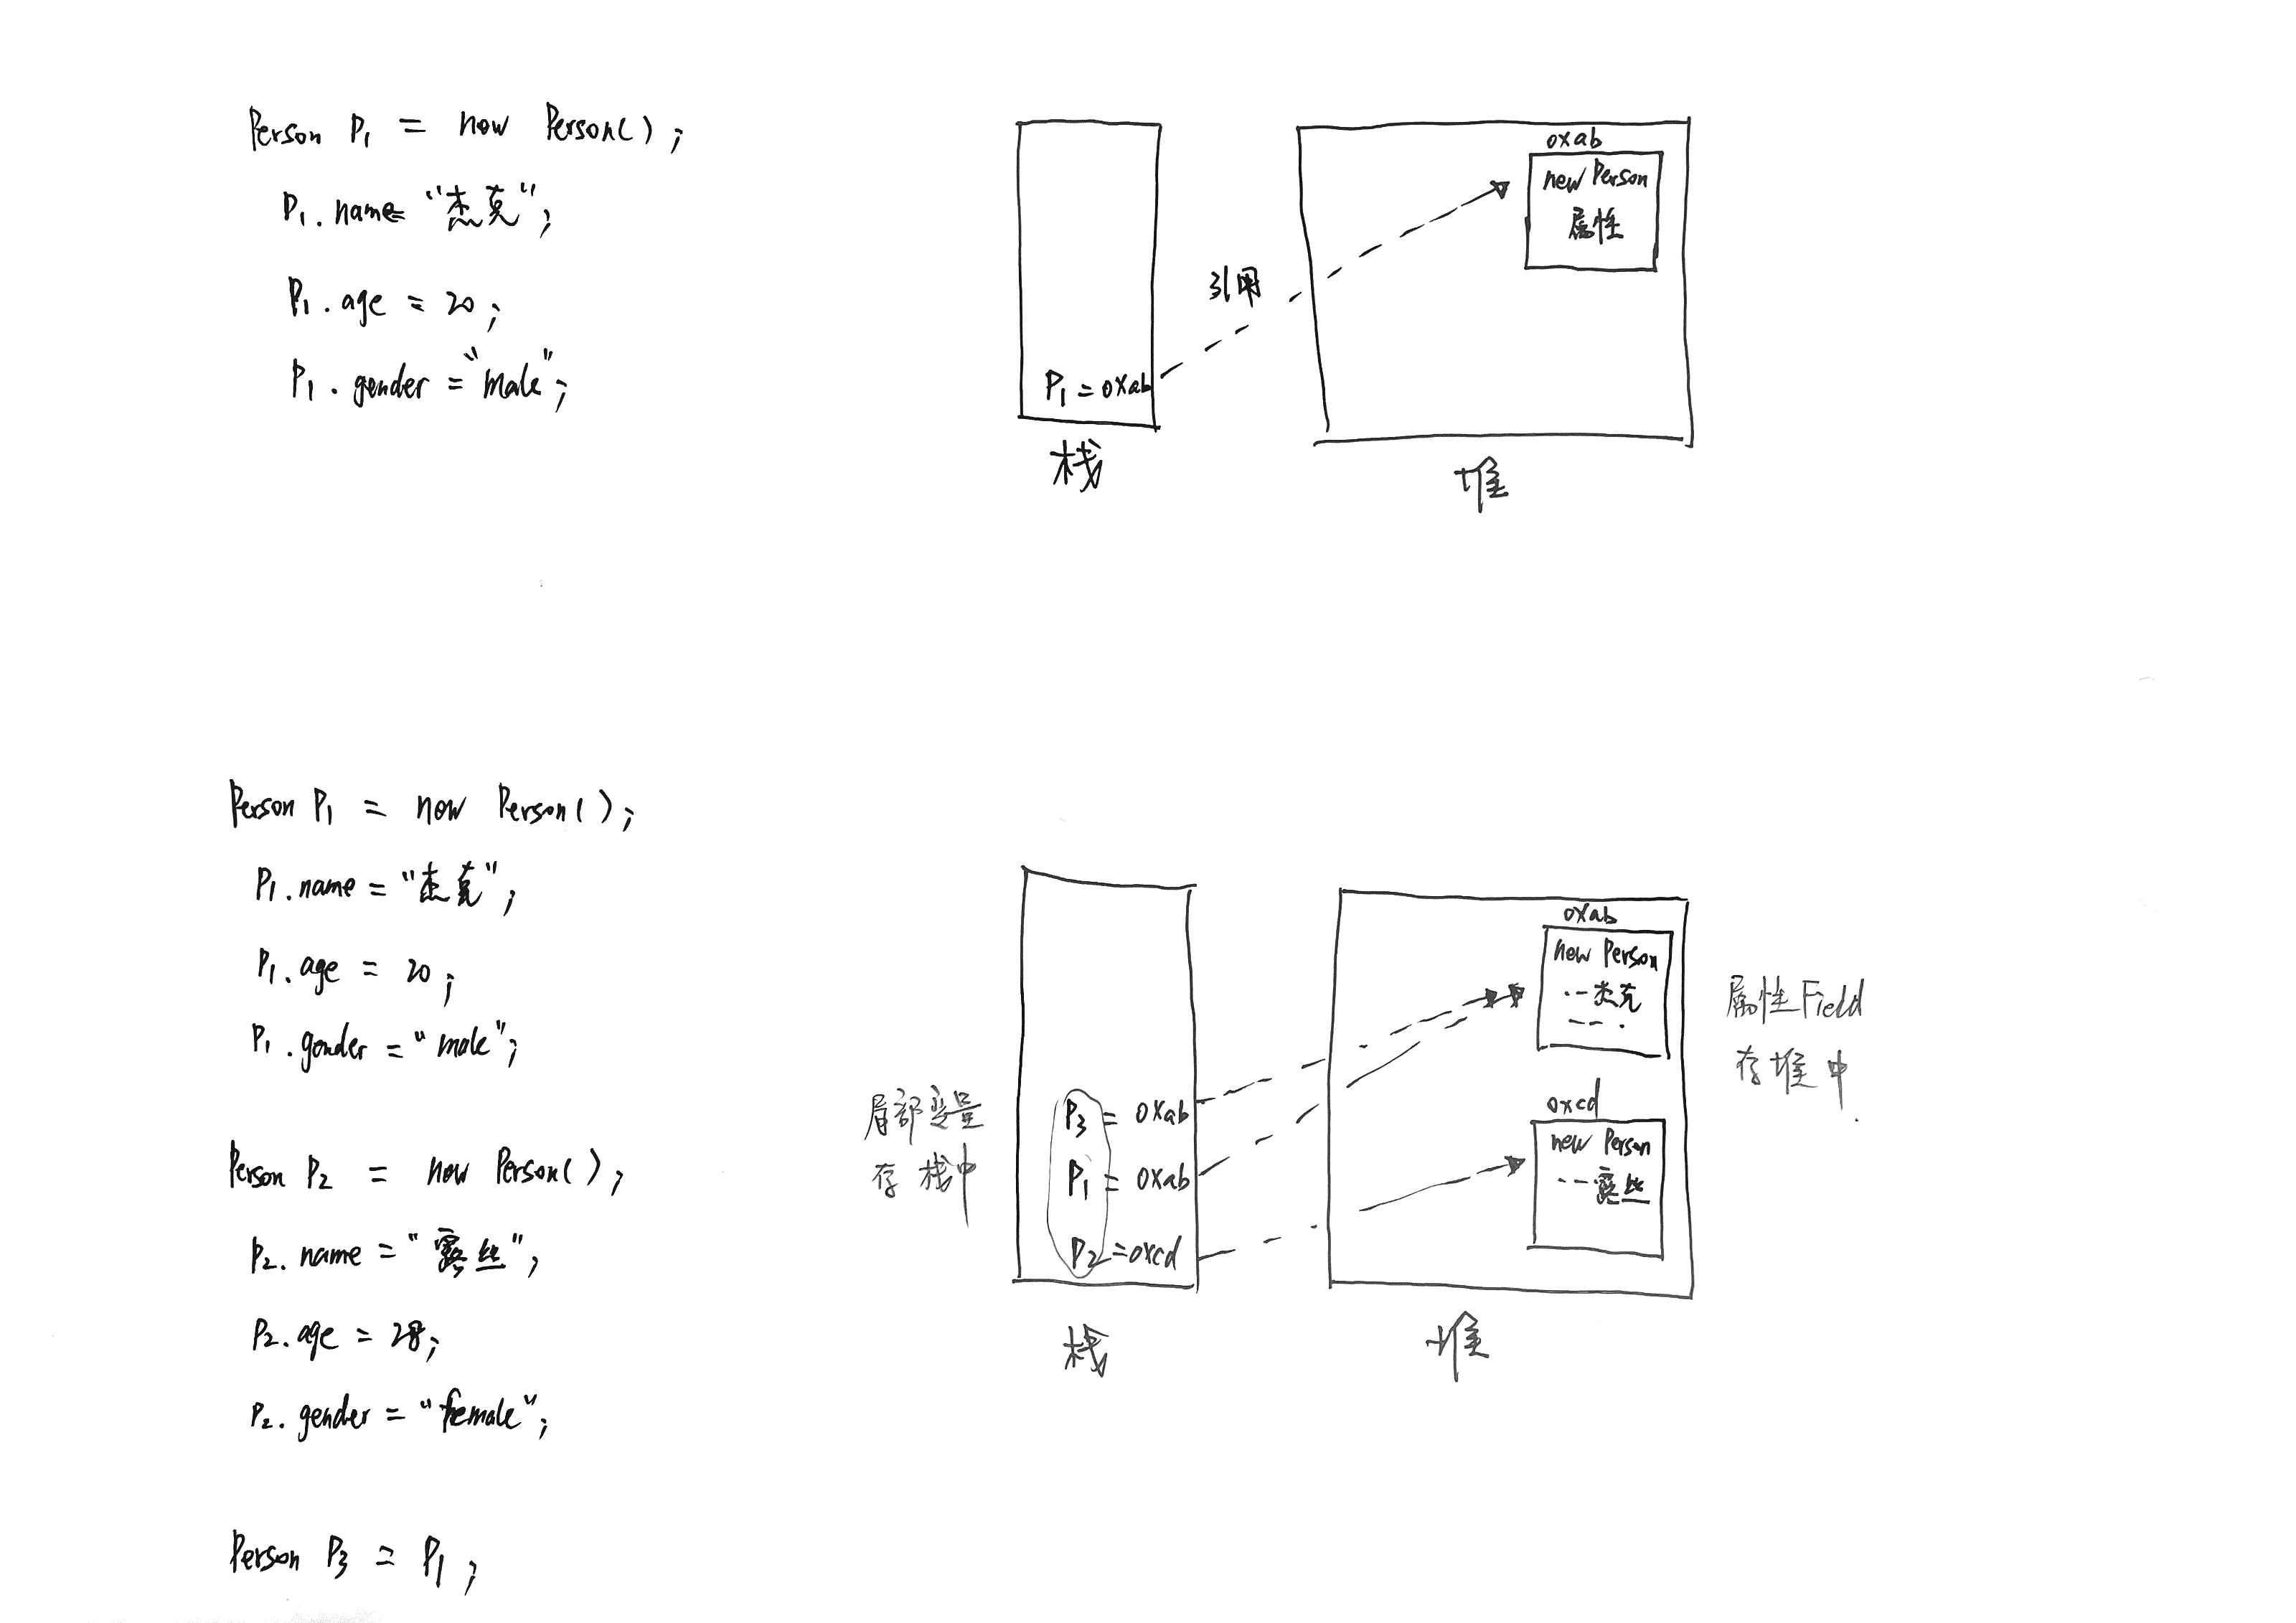 Person P1 = new Person();
P1.name= "杰克";
P1.age = 20;
P1.gender = "male";
引用
P1=0xab
栈
0xab
new Person
属性
堆
Person P1 = new Person();
P1.name = "杰克";
P1.age = 20;
P1.gender = "male";
Person P2 = new Person();
P2.name = "露丝";
P2.age = 28;
P2.gender = "female";
Person P3 = P1;
局部变量
存栈中
P3 = 0xab
P1 = 0xab
P2 = 0xcd
栈
0xab
new Person
..—杰克
--- .
0xcd
new Person
..—露丝
堆
属性Field
存堆中.